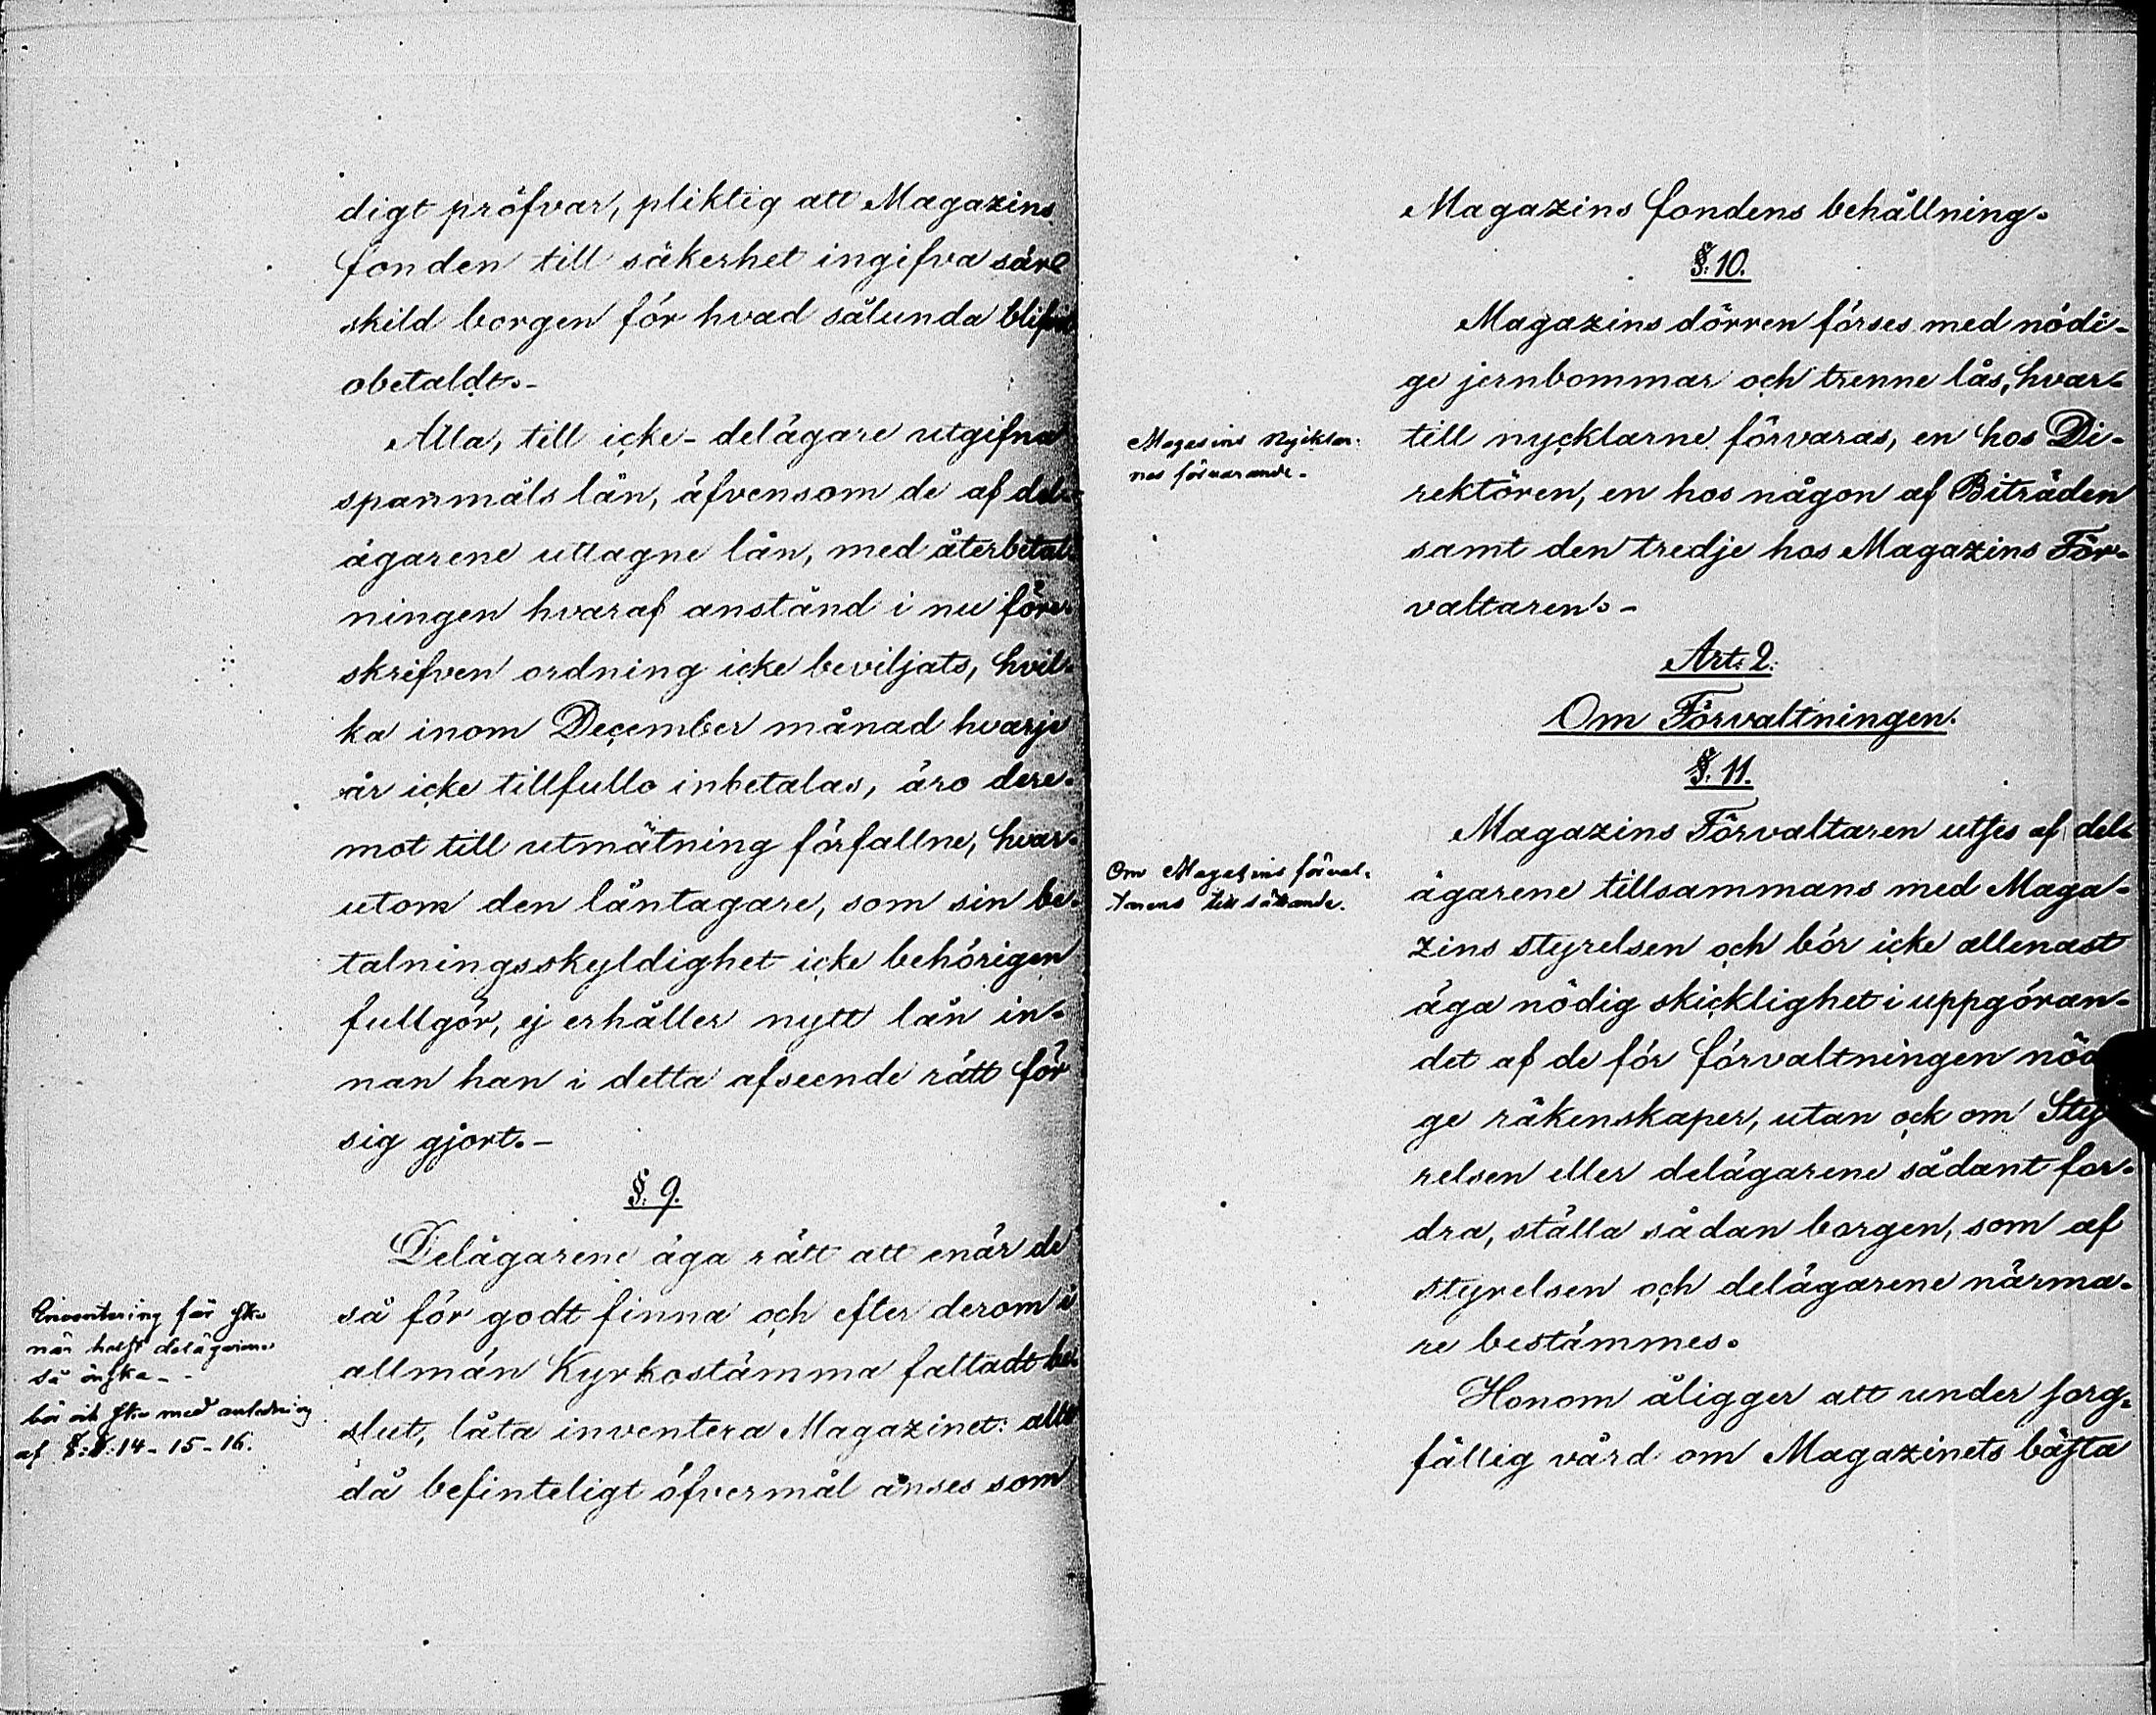 digt pröfvar, pliktig att Magazins
fonden till säkerhet ingifva sär-
skild borgen för hvad sålunda blifvit
obetaldt.-
Alla, till icke-delägare utgifna
spanmåls lån, äfvensom de af del-
ägarene uttagne lån, med återbetal-
ningen hvaraf anstånd i nu före-
skrifven ordning icke beviljats, hvil-
ka inom December månad hvarje
år icke tillfullo inbetalas, äro dere-
mot till utmätning förfallne, hvar-
utom den låntagare, som sin be-
talningsskyldighet icke behörigen
fullgör, ej erhåller nytt lån in-
nan han i detta afseende rätt för
sig gjort.-
§. 9.
Delägarene äga rätt att enär de
så för godt finna och efter derom i
allmän Kyrkostämma fattadt be-
slut, låta inventera Magazinet: allt
då befinteligt öfvermål anses som
Inventering får ske
när helst delägarene
så önska--
bör ock ske med anledning
af §:§:14-15-16.
Magazins fondens behållning.
§. 10.
Magazins dörren förses med nödi-
ge jernbommar och trenne lås, hvar-
till nycklarne förvaras, en hos Di-
rektören, en hos någon af Biträden
samt den tredje hos Magazins För-
valtaren.-
Magasins nycklar-
nes förvarande.
Art: 2.
Om Förvaltningen.
§. 11.
Magazins Förvaltaren utses af del-
ägarene tillsammans med Maga-
zins styrelsen och bör icke allenast
äga nödig skicklighet i uppgöran-
det af de för förvaltningen nöd
ge räkenskaper, utan ock om Sty
relsen eller delägarene sådant for-
dra, ställa sådan borgen, som af
styrelsen och delägarene närma-
re bestämmes.
Honom åligger att under sorg-
fällig vård om Magazinets bästa
Om Magasins förval-
tarens tillsättande.